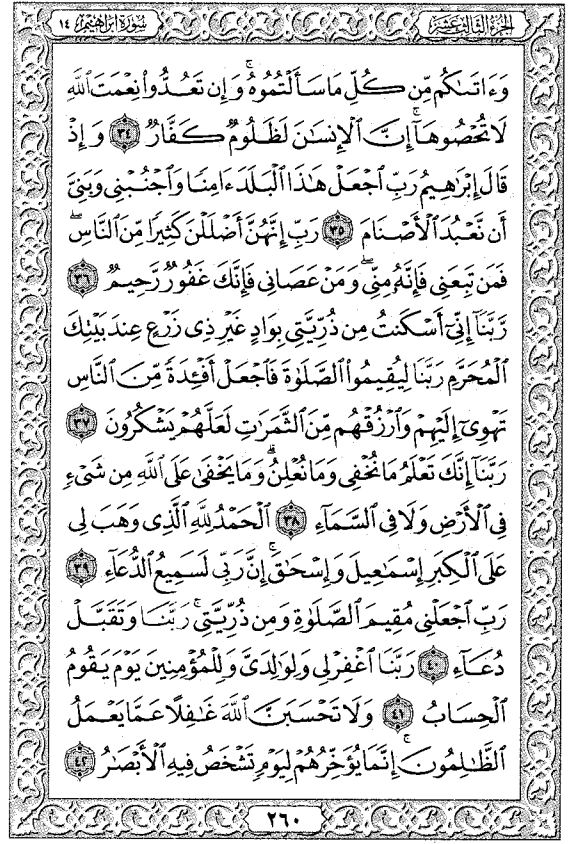 سورة إبراهيم ١٤
الجزء الثالث عشر
وَءَاتَىٰكُم مِّن كُلِّ مَا سَأَلْتُمُوهُ ۚ وَإِن تَعُدُّوا۟ نِعْمَتَ ٱللَّهِ
لَا تُحْصُوهَآ ۗ إِنَّ ٱلْإِنسَـٰنَ لَظَلُومٌ كَفَّارٌ ٣٤ وَإِذْ
قَالَ إِبْرَٰهِيمُ رَبِّ ٱجْعَلْ هَـٰذَا ٱلْبَلَدَ ءَامِنًا وَٱجْنُبْنِى وَبَنِىَّ
أَن نَّعْبُدَ ٱلْأَصْنَامَ ٣٥ رَبِّ إِنَّهُنَّ أَضْلَلْنَ كَثِيرًا مِّنَ ٱلنَّاسِ ۖ
فَمَن تَبِعَنِى فَإِنَّهُۥ مِنِّى ۖ وَمَنْ عَصَانِى فَإِنَّكَ غَفُورٌ رَّحِيمٌ ٣٦
رَّبَّنَآ إِنِّىٓ أَسْكَنتُ مِن ذُرِّيَّتِى بِوَادٍ غَيْرِ ذِى زَرْعٍ عِندَ بَيْتِكَ
ٱلْمُحَرَّمِ رَبَّنَا لِيُقِيمُوا۟ ٱلصَّلَوٰةَ فَٱجْعَلْ أَفْـِٔدَةً مِّنَ ٱلنَّاسِ
تَهْوِىٓ إِلَيْهِمْ وَٱرْزُقْهُم مِّنَ ٱلثَّمَرَٰتِ لَعَلَّهُمْ يَشْكُرُونَ ٣٧
رَبَّنَآ إِنَّكَ تَعْلَمُ مَا نُخْفِى وَمَا نُعْلِنُ ۗ وَمَا يَخْفَىٰ عَلَى ٱللَّهِ مِن شَىْءٍ
فِى ٱلْأَرْضِ وَلَا فِى ٱلسَّمَآءِ ٣٨ ٱلْحَمْدُ لِلَّهِ ٱلَّذِى وَهَبَ لِى
عَلَى ٱلْكِبَرِ إِسْمَـٰعِيلَ وَإِسْحَـٰقَ ۚ إِنَّ رَبِّى لَسَمِيعُ ٱلدُّعَآءِ ٣٩
رَبِّ ٱجْعَلْنِى مُقِيمَ ٱلصَّلَوٰةِ وَمِن ذُرِّيَّتِى ۚ رَبَّنَا وَتَقَبَّلْ
دُعَآءِ ٤٠ رَبَّنَا ٱغْفِرْ لِى وَلِوَٰلِدَىَّ وَلِلْمُؤْمِنِينَ يَوْمَ يَقُومُ
ٱلْحِسَابُ ٤١ وَلَا تَحْسَبَنَّ ٱللَّهَ غَـٰفِلًا عَمَّا يَعْمَلُ
ٱلظَّـٰلِمُونَ ۚ إِنَّمَا يُؤَخِّرُهُمْ لِيَوْمٍ تَشْخَصُ فِيهِ ٱلْأَبْصَـٰرُ ٤٢
٢٦٠